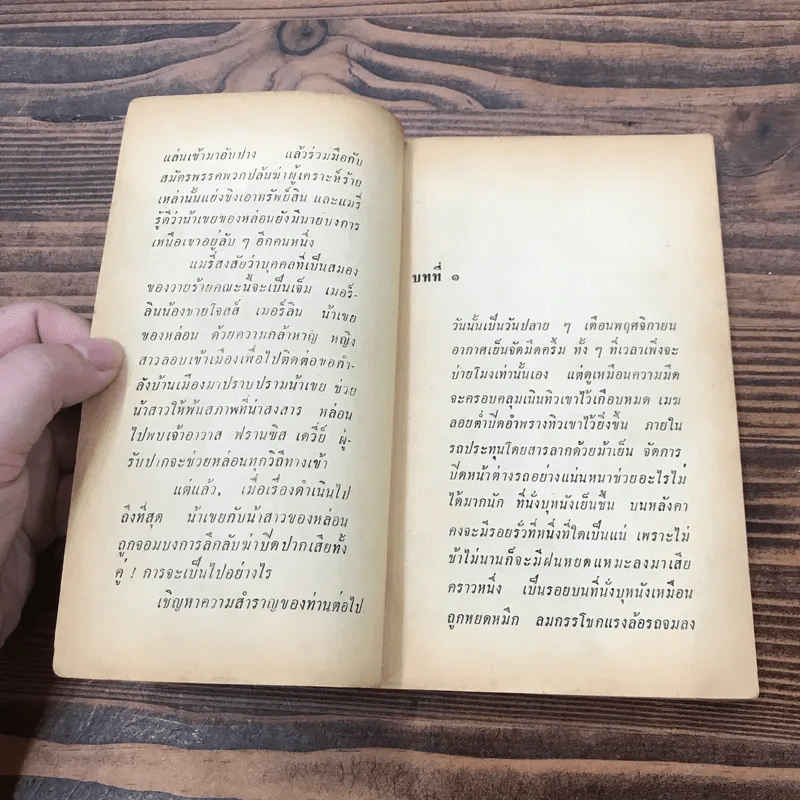 แล่นเข้ามาอับปาง แล้วร่วมมือกับ
สมัครพรรคพวกปล้นฆ่าผู้เคราะห์ร้าย
เหล่านั้นแย่งชิงเอาทรัพย์สิน และแมรี่
รู้ดีว่าน้าเขยของหล่อนยังมีนายบงการ
เหนือเขาอยู่ลับ ๆ อีกคนหนึ่ง
แมรี่สงสัยว่าบุคคลที่เป็นสมอง
ของวายร้ายคณะนี้จะเป็นเจ็ม เมอร์-
ลินน้องชายโจสส์ เมอร์ลิน น้าเขย
ของหล่อน ด้วยความกล้าหาญ หญิง
สาวลอบเข้าเมืองเพื่อไปติดต่อขอกำ-
ลังบ้านเมืองมาปราบปรามน้าเขย ช่วย
น้าสาวให้พ้นสภาพที่น่าสงสาร หล่อน
ไปพบเจ้าอาวาส ฟรานซิส เดวี่ย์ ผู้-
รับปากจะช่วยหล่อนทุกวิถีทางเข้า
แต่แล้ว, เมื่อเรื่องดำเนินไป
ถึงที่สุด น้าเขยกับน้าสาวของหล่อน
ถูกจอมบงการลึกลับฆ่าปิดปากเสียทั้ง
คู่ ! การจะเป็นไปอย่างไร
เชิญหาความสำราญของท่านต่อไป
บทที่ ๑
วันนั้นเป็นวันปลาย ๆ เดือนพฤศจิกายน
อากาศเย็นจัดมืดครึ้ม ทั้ง ๆ ที่เวลาเพิ่งจะ
บ่ายโมงเท่านั้นเอง แต่ดูเหมือนความมืด
จะครอบคลุมเนินทิวเขาไว้เกือบหมด เมฆ
ลอยต่ำปิดอำพรางทิวเขาไว้ยิ่งขึ้น ภายใน
รถประทุนโดยสารลากด้วยม้าเย็น จัดการ
ปิดหน้าต่างรถอย่างแน่นหนาช่วยอะไรไม่
ได้มากนัก ที่นั่งบุหนังเย็นชื้น บนหลังคา
คงจะมีรอยรั่วที่หนึ่งที่ใดเป็นแน่ เพราะไม่
ช้าไม่นานก็จะมีฝนหยดแหมะลงมาเสีย
คราวหนึ่ง เป็นรอยบนที่นั่งบุหนังเหมือน
ถูกหยดหมึก ลมกรรโชกแรงล้อรถจมลง